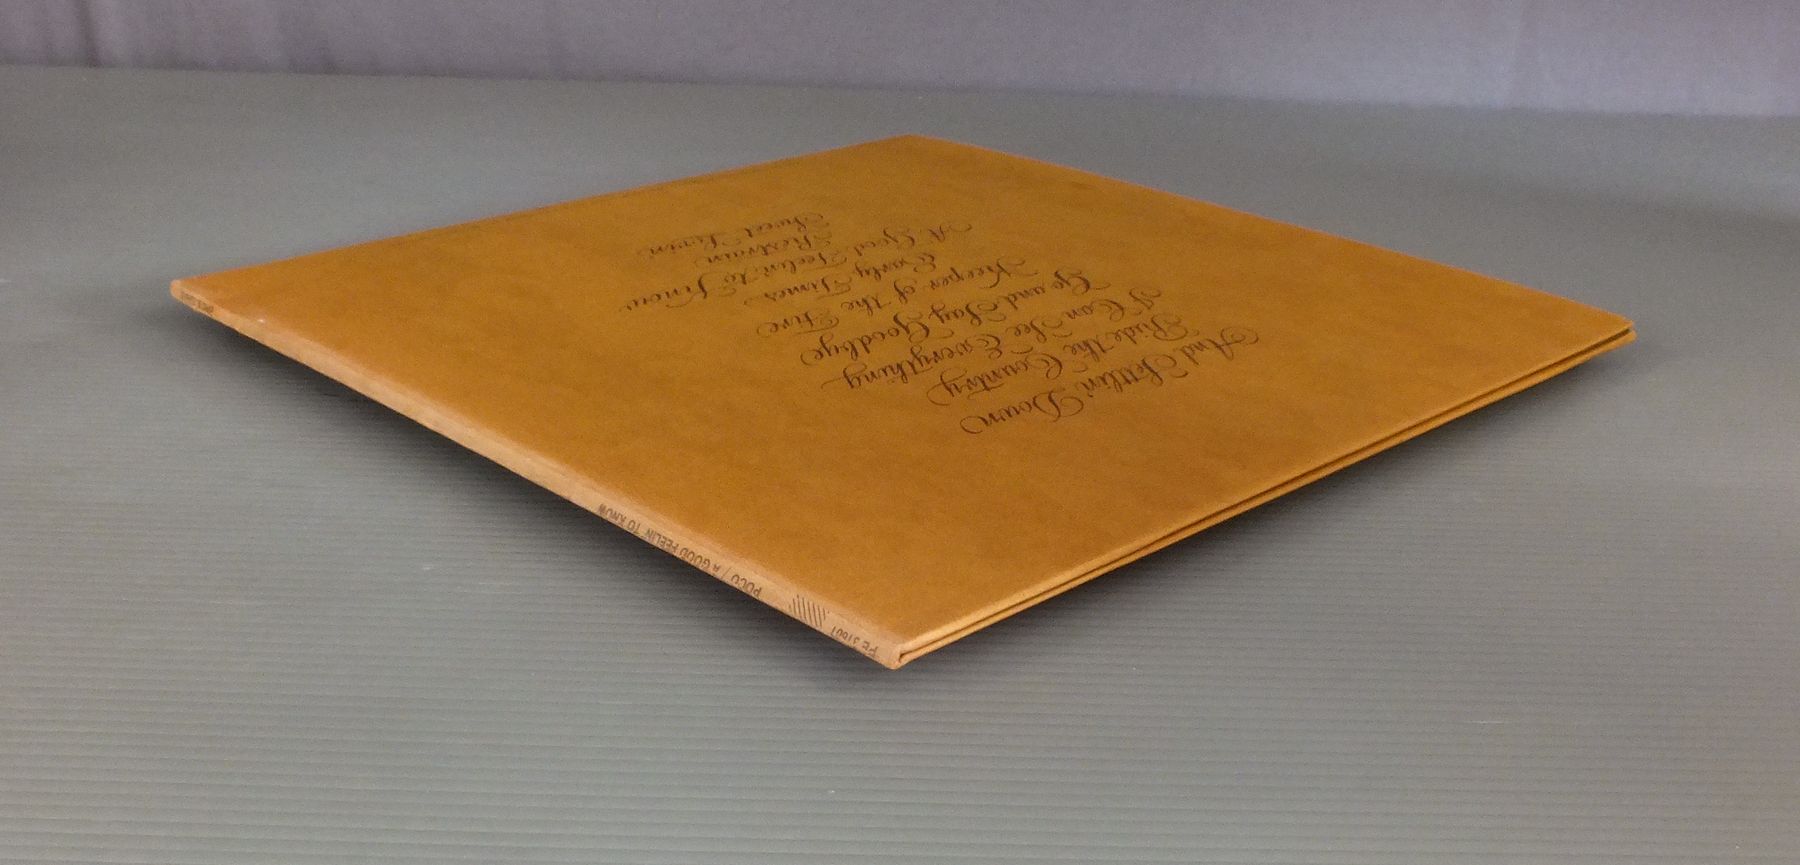 And Settlin' Down
Ride the Country
I Can See Everything
Go and Say Goodbye
Keeper of the Fire
Early Times
A Good Feelin' to Know
Restrain
Sweet Lovin'
FE 31601 POCO / A GOOD FEELIN' TO KNOW